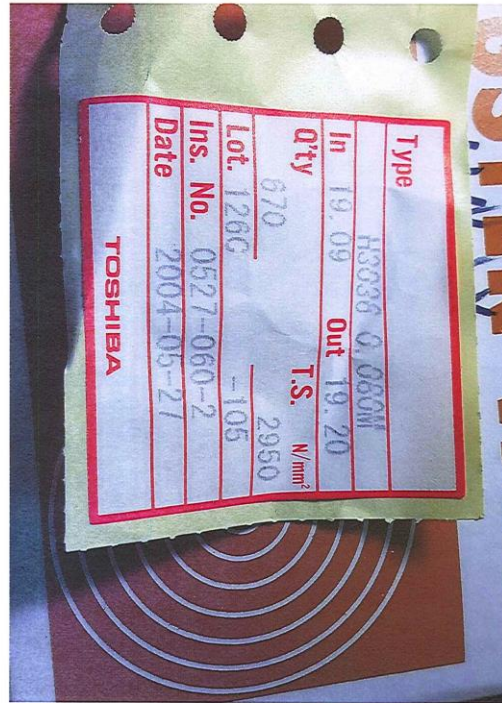 Type
H3036 0.080M
In 19.09 Out 19.20
Q'ty T.S. N/mm²
670 2950
Lot. 126G --105
Ins. No. 0527-060-2
Date 2004-05-27
TOSHIBA